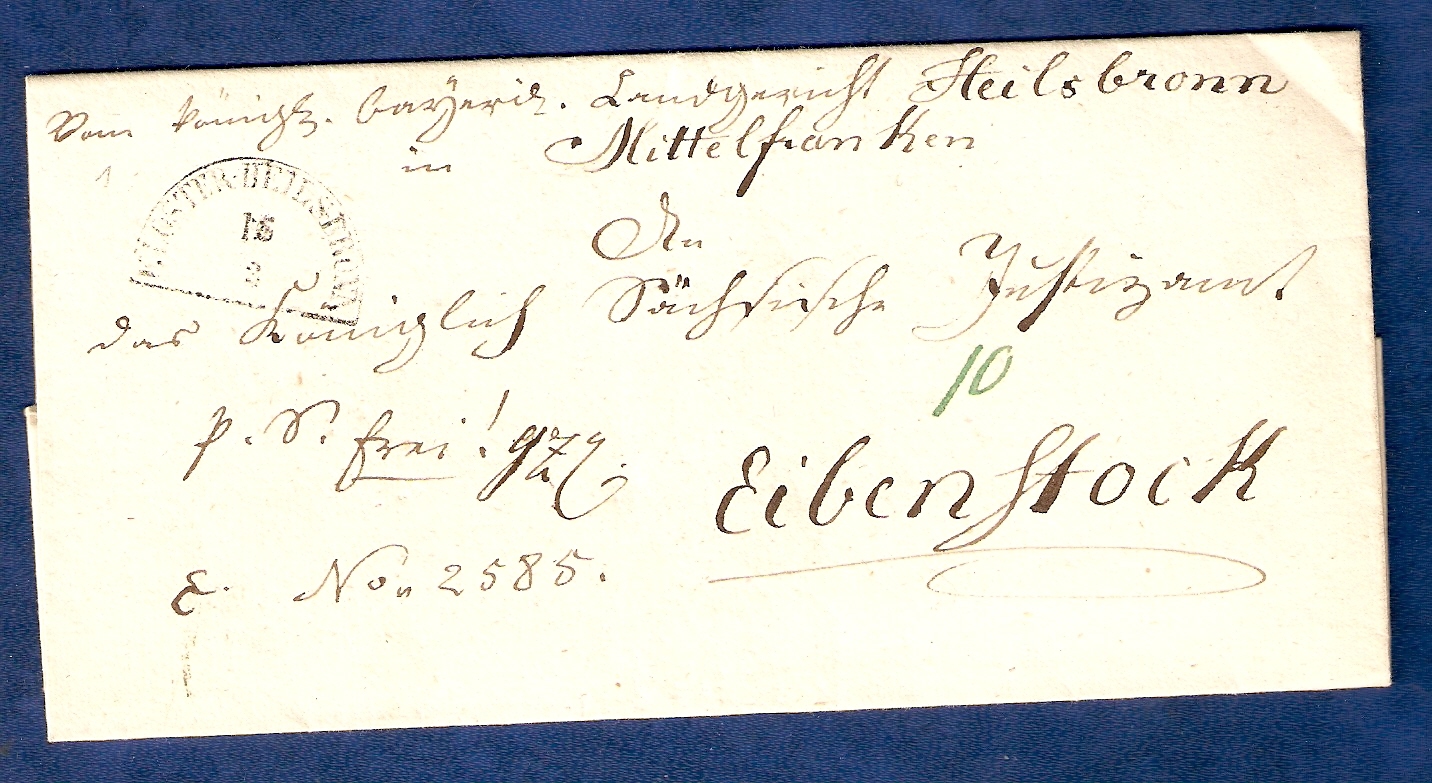 Vom königl. bayerisch. Landgericht Heilsbronn
in Mittelfranken
KLOSTER-HEILSBRONN
16
3
An
das Königlich Sächsische Justizamt
10
p. S. frei!
Eibenstock
E. No. 2585.